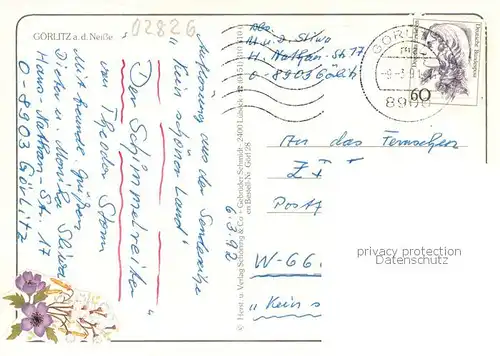 02826
GÖRLITZ a. d. Neiße
Auflösung aus der Sendereihe
"Kein schöner Land"
6.3.92
"Der Schimmelreiter"
von Theodor Storm
Mit freundl. Grüßen
Dieter u. Monika
Hans-Nathan-Str. 17
O-8903 Görlitz
Abs.
M. u. D. Stiwo
H. Nathan-Str. 17
O-8903 Görlitz
© Herst. u. Verlag Schöning & Co + Gebrüder Schmidt · 2400 Lübeck
Bestell-Nr. Görl 28
GÖRLITZ
8900
Deutsche Bundespost
60
An das Fernsehen
ZDF
Postf
W-66
"Kein s
privacy protection
AnsichtskartenVersand.com